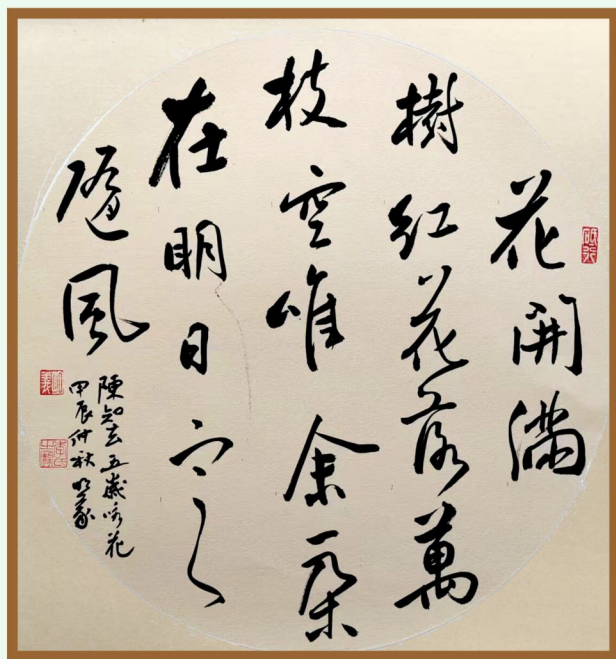 砥行
花開滿
樹紅花落萬
枝空唯余一朵
在明日定
隨風
陳知玄五歲咏花
甲辰仲秋